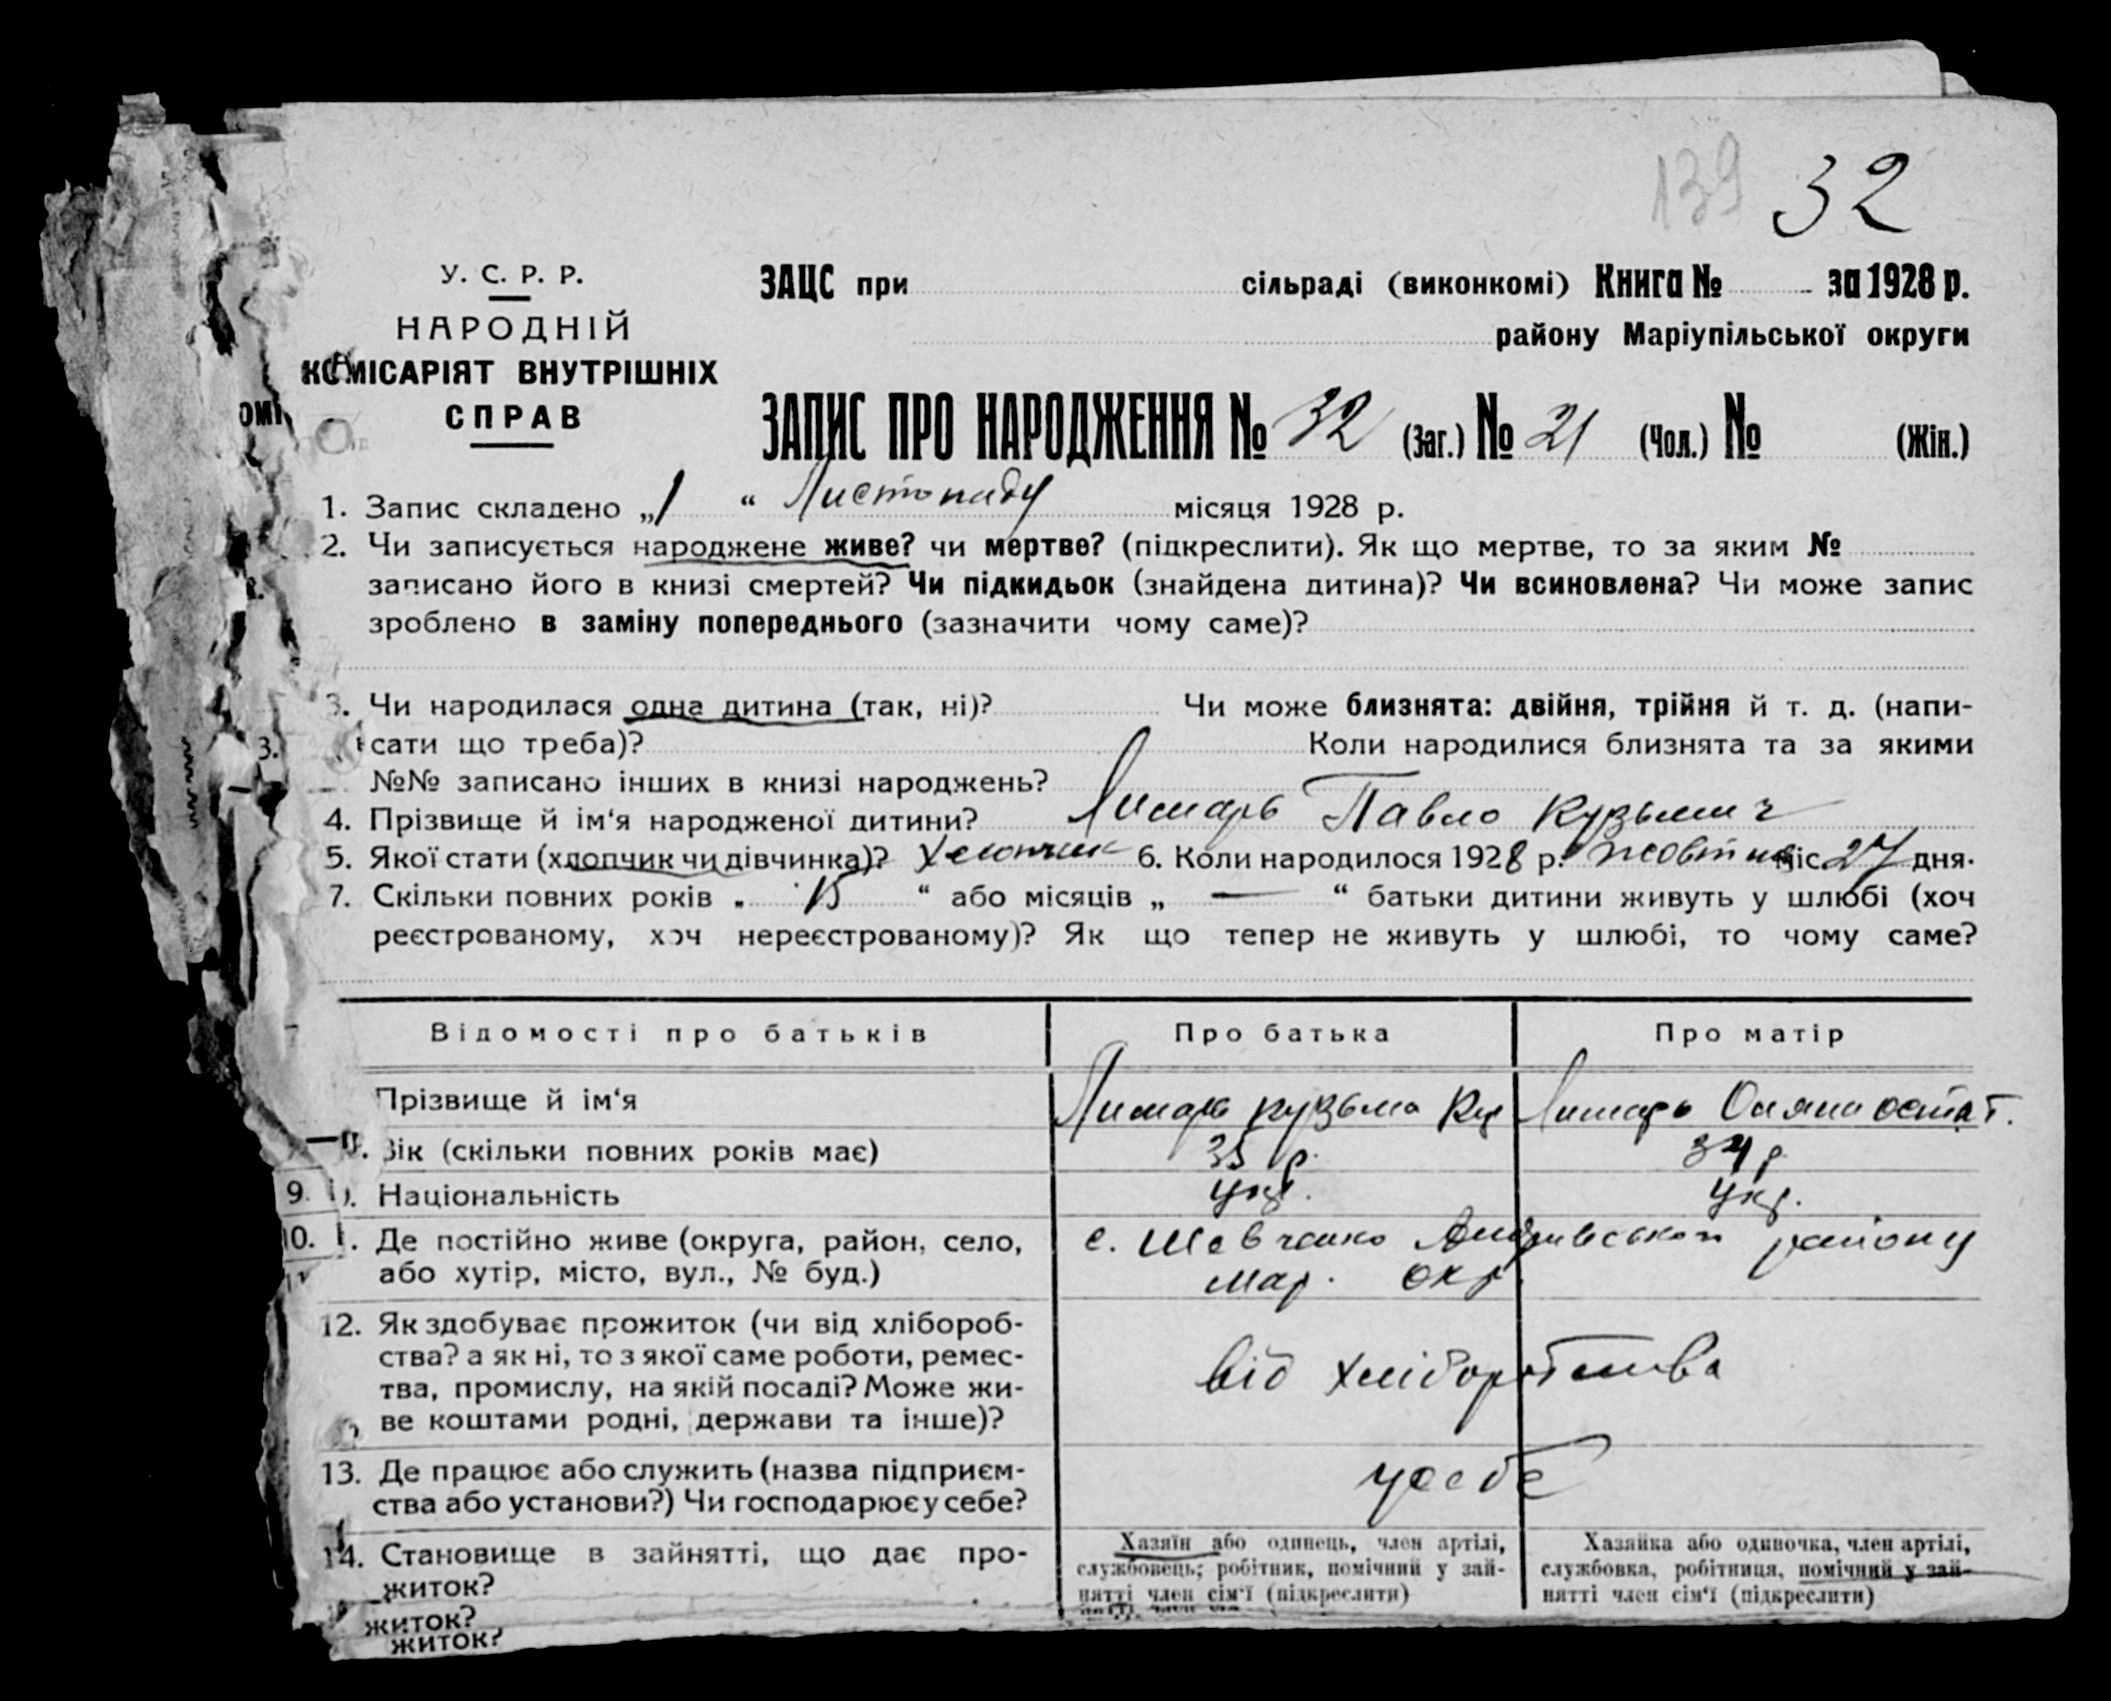 139 32
У. С. Р. Р.
НАРОДНІЙ
КОМІСАРІЯТ ВНУТРІШНІХ
СПРАВ
ЗАЦС при сільраді (виконкомі) Книга № за 1928 р.
району Маріупільської округи
ЗАПИС ПРО НАРОДЖЕННЯ № 32 (Заг.) № 21 (Чол.) № (Жін.)
1. Запис складено „1 “ Листопаду місяця 1928 р.
2. Чи записується народжене живе? чи мертве? (підкреслити). Як що мертве, то за яким №
записано його в книзі смертей? Чи підкидьок (знайдена дитина)? Чи всиновлена? Чи може запис
зроблено в заміну попереднього (зазначити чому саме)?
3. Чи народилася одна дитина (так, ні)? Чи може близнята: двійня, трійня й т. д. (напи-
сати що треба)? Коли народилися близнята та за якими
№№ записано інших в книзі народжень?
4. Прізвище й ім‘я народженої дитини? Лимарь Павло Кузьмич
5. Якої стати (хлопчик чи дівчинка)? Хлопчик 6. Коли народилося 1928 р. жовтня міс. 27 дня.
7. Скільки повних років „ 15 “ або місяців „ — “ батьки дитини живуть у шлюбі (хоч
реєстрованому, хоч нереєстрованому)? Як що тепер не живуть у шлюбі, то чому саме?
Відомості про батьків Про батька Про матір
Прізвище й ім‘я Лимарь Кузьма Ку Лимарь Остат.
Вік (скільки повних років має) 35 р. 34 р.
Національність Укр. Укр.
9.
10. Де постійно живе (округа, район, село, с. Шевченко району
або хутір, місто, вул., № буд.) Мар. Окр.
12. Як здобуває прожиток (чи від хлібороб-
ства? а як ні, то з якої саме роботи, ремес-
тва, промислу, на якій посаді? Може жи-
ве коштами родні, держави та інше)?
від хліборобства
13. Де працює або служить (назва підприєм-
ства або установи?) Чи господарює у себе?
у себе
14. Становище в зайнятті, що дає про-
житок?
Хазяїн або одинець, член артілі,
службовець; робітник, помічний у зай-
нятті член сім‘ї (підкреслити)
Хазяйка або одиночка, член артілі,
службовка, робітниця, помічний у зай-
нятті член сім‘ї (підкреслити)
житок?
житок?